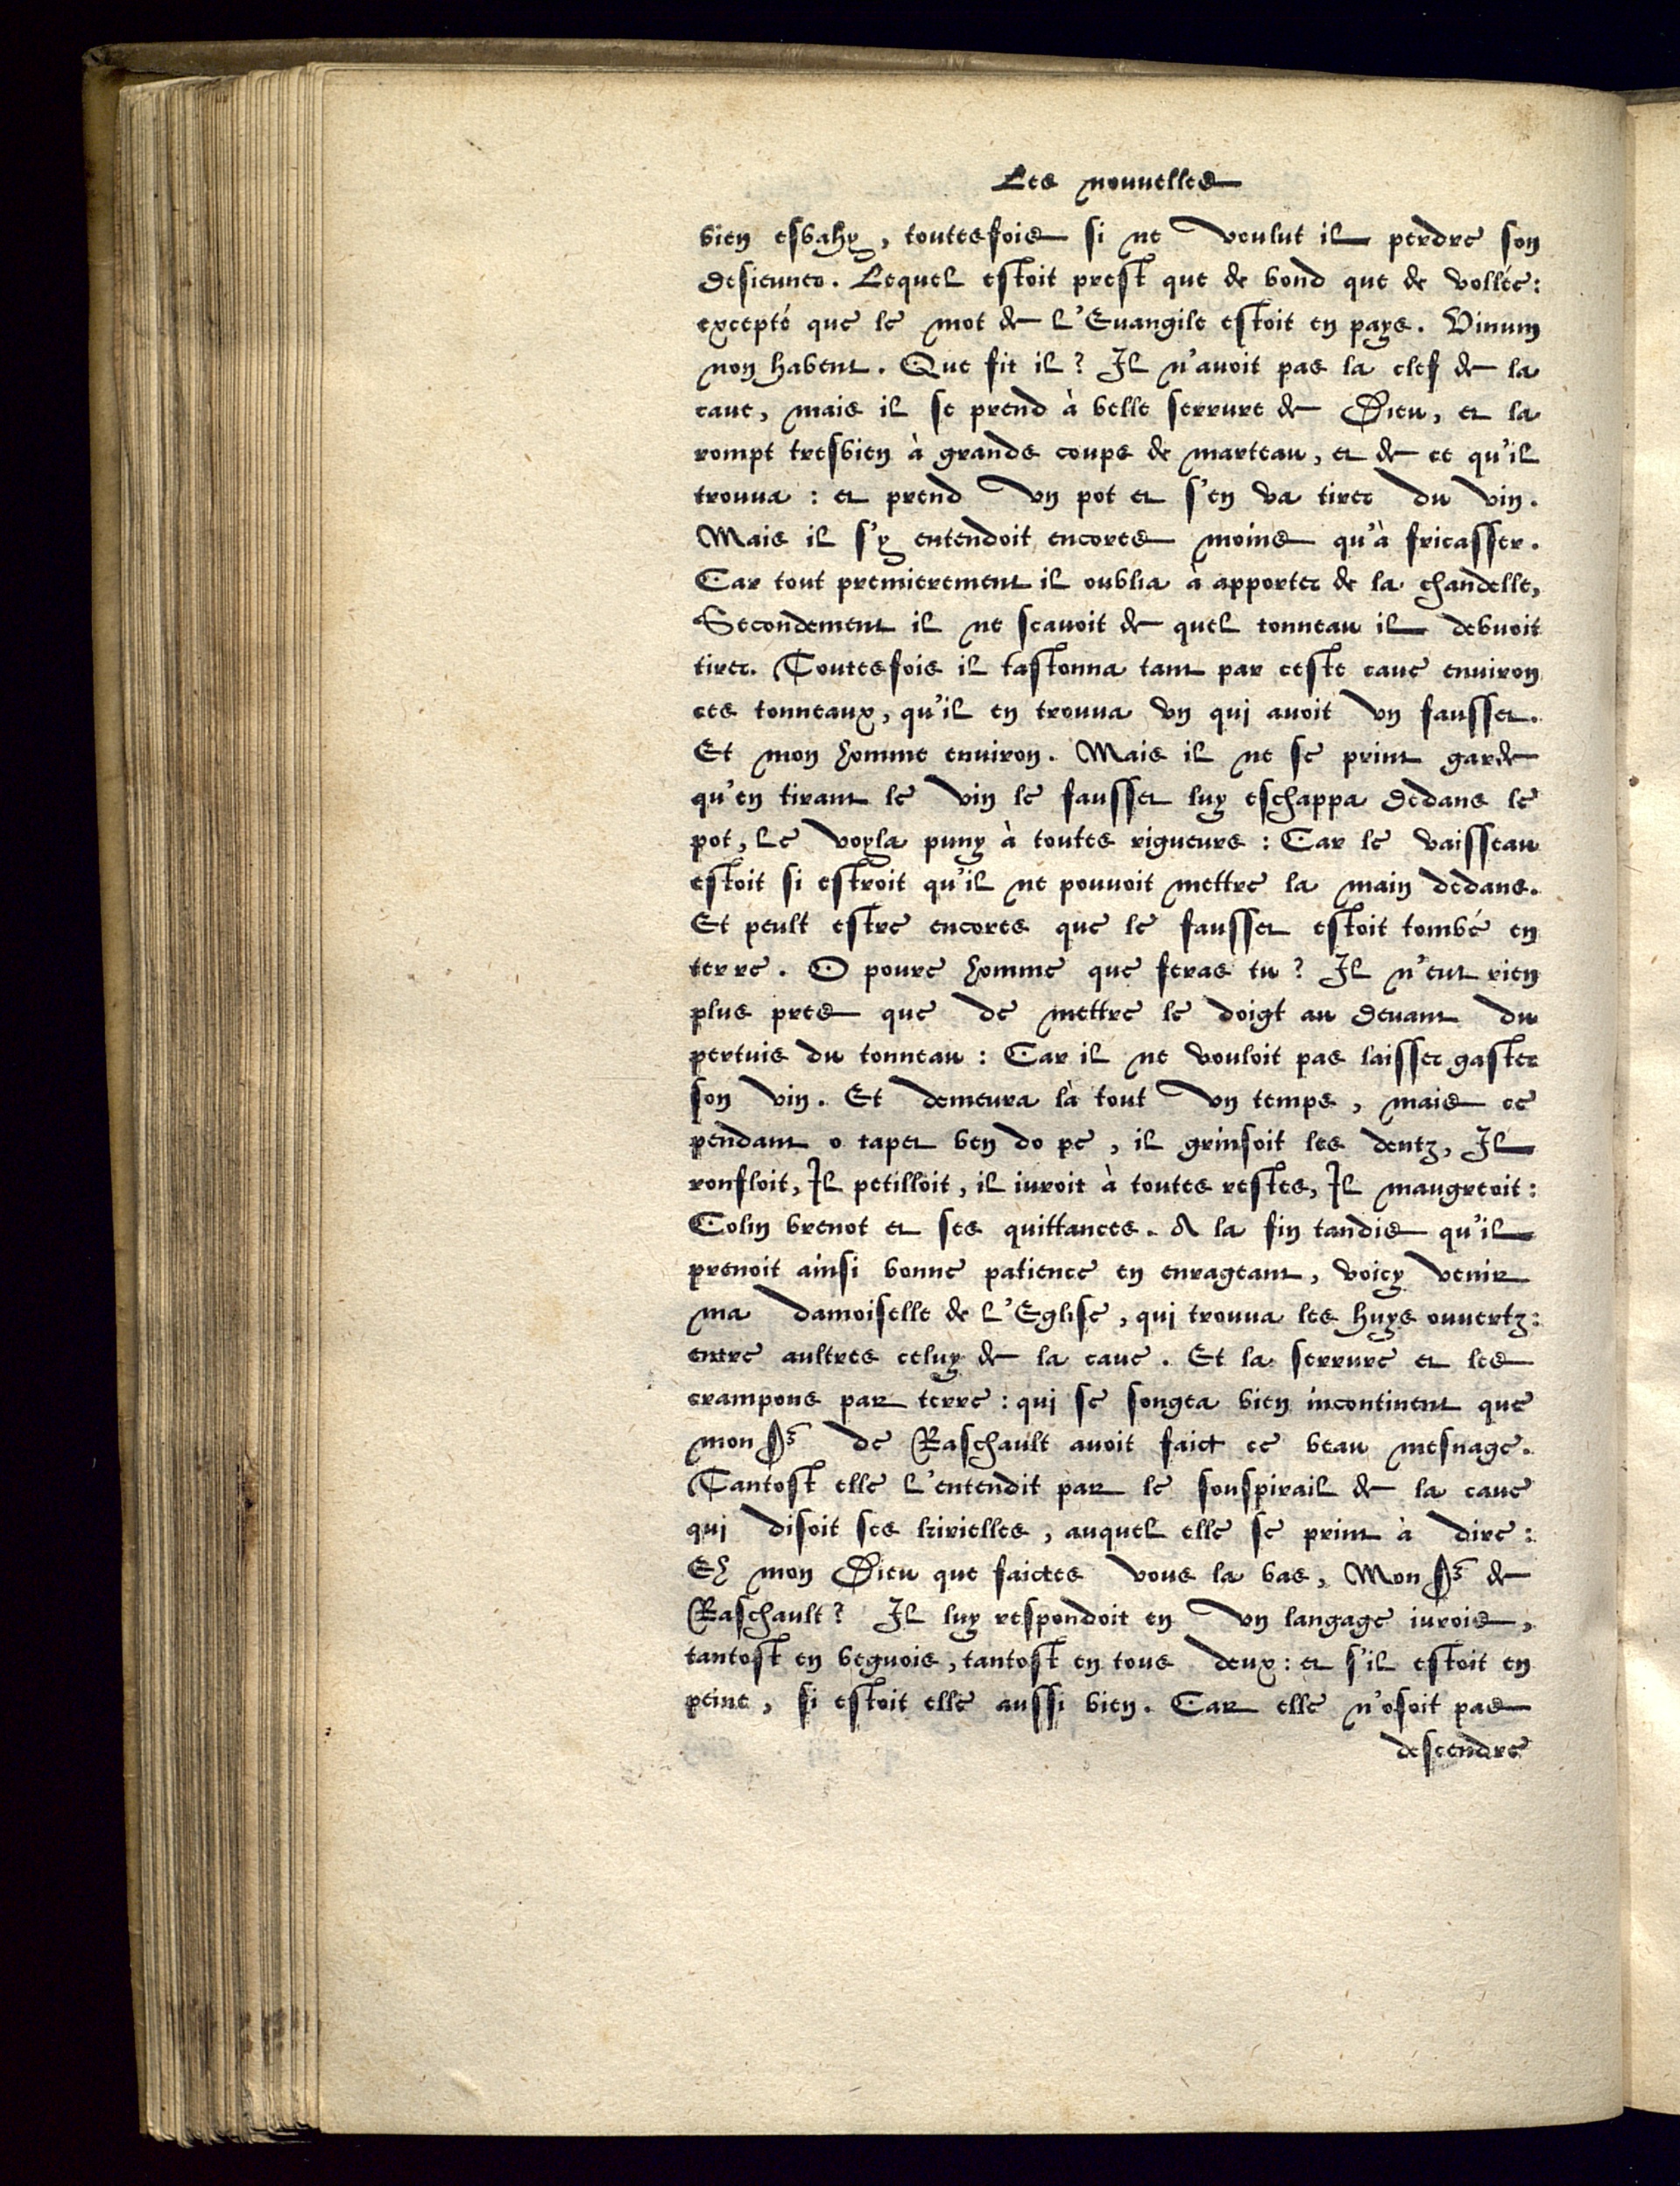 Les nouuelles
bien esbahy, toutesfois si ne voulut il perdre son
desieuner. Lequel estoit prest que de bond que de vollée:
excepté que le mot de l'Euangile estoit en pays. Vinum
non habent. Que fit il? Il n'auoit pas la clef de la
caue, mais il se prend à belle serrure de Dieu, et la
rompt tresbien à grands coups de marteau, et de ce qu'il
trouua: et prend vn pot et s'en va tirer du vin.
Mais il s'y entendoit encores moins qu'à fricasser.
Car tout premierement il oublia à apporter de la chandelle,
Secondement il ne scauoit de quel tonneau il debuoit
tirer. Toutesfois il tastonna tant par ceste caue enuiron
ces tonneaux, qu'il en trouua vn qui auoit vn fausset.
Et mon homme enuiron. Mais il ne se print garde
qu'en tirant le vin le fausset luy eschappa dedans le
pot, Le voyla puny à toutes rigueurs: Car le vaisseau
estoit si estroit qu'il ne pouuoit mettre la main dedans.
Et peult estre encores que le fausset estoit tombé en
terre. O poure homme que feras tu? Il n'eut rien
plus pres que de mettre le doigt au deuant du
pertuis du tonneau: Car il ne vouloit pas laisser gaster
son vin. Et demeura là tout vn temps, mais ce
pendant o tapet ben do pe, il grinsoit les dentz, Il
ronfloit, Il petilloit, il iuroit à toutes restes, Il maugreoit:
Colin brenot et ses quittances. A la fin tandis qu'il
prenoit ainsi bonne patience en enrageant, voicy venir
ma damoiselle de l'Eglise, qui trouua les huys ouuertz:
entre aultres celuy de la caue. Et la serrure et les
crampons par terre: qui se songea bien incontinent que
mon Sr de Raschault auoit faict ce beau mesnage.
Tantost elle l'entendit par le souspirail de la caue
qui disoit ses kirielles, auquel elle se print à dire:
Eh mon Dieu que faictes vous la bas, Mon Sr de
Raschault? Il luy respondoit en vn langage iurois,
tantost en beguois, tantost en tous deux: et s'il estoit en
peine, si estoit elle aussi bien. Car elle n'osoit pas
descendre